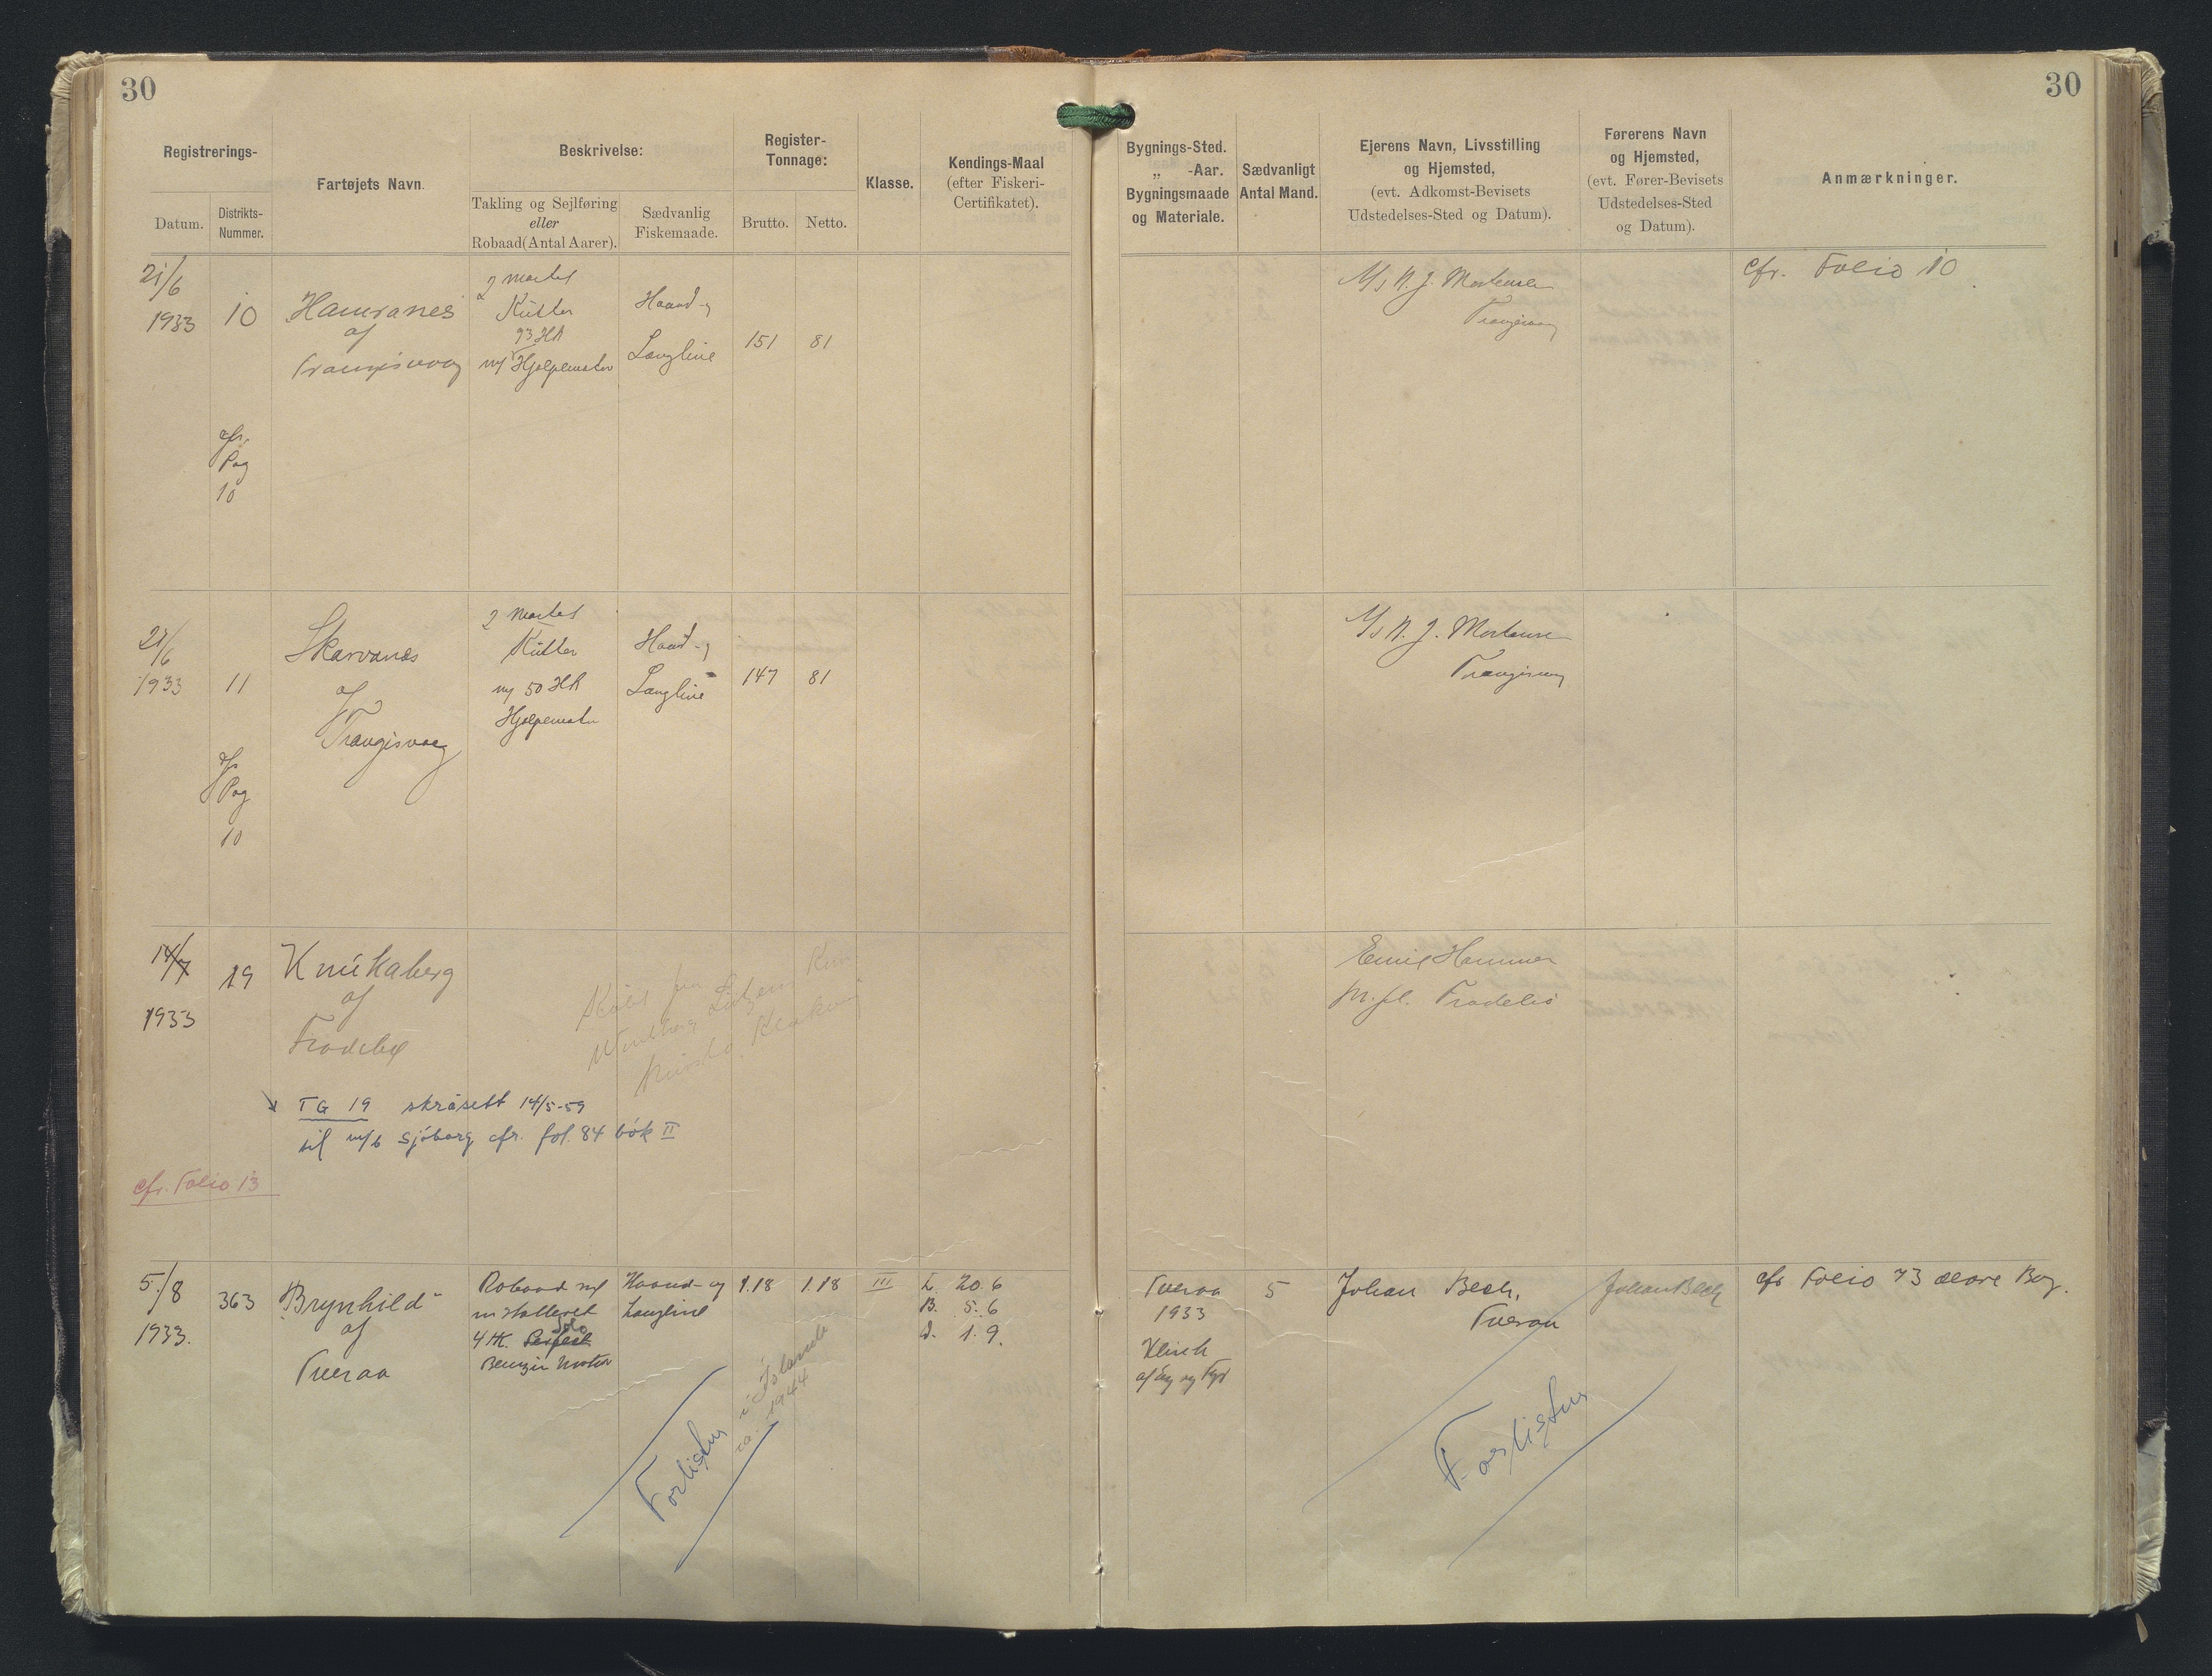 30
30
Registrerings-
Datum.
Distrikts-
Nummer.
Fartøjets Navn.
Beskrivelse:
Takling og Sejlføring
eller
Robaad(Antal Aarer).
Sædvanlig
Fiskemaade.
Register-
Tonnage:
Brutto.
Netto.
Klasse.
Kendings-Maal
(efter Fiskeri-
Certifikatet).
Bygnings-Sted.
„ -Aar.
Bygningsmaade
og Materiale.
Sædvanligt
Antal Mand.
Ejerens Navn, Livsstilling
og Hjemsted,
(evt. Adkomst-Bevisets
Udstedelses-Sted og Datum).
Førerens Navn
og Hjemsted,
(evt. Fører-Bevisets
Udstedelses-Sted
og Datum).
Anmærkninger.
21/6
1933
10
cfr.
Pag
10
Hamranes
af
Trangisvaag
2 mastet
Kutter
93 HK
m/ Hjælpemotor
Haand- og
Langline
151
81
A/s N. J. Mortensen
Trangisvaag
cfr. Folio 10
21/6
1933
11
cfr
Pag
10
Skarvanes
af
Trangisvaag
2 mastet
Kutter
m/ 50 HK
Hjælpemotor
Haand- og
Langline
147
81
A/s N. J. Mortensen
Trangisvaag
14/7
1933
19
Knúkaberg
af
Frodebø
Emil Hammer
m.fl. Frodebø
TG 19 skrásett 14/5-59
til m/b Sjóborg cfr. fol. 84 bók II
cfr. Folio 13
5./8
1933.
363
"Brynhild"
af
Tveraa
Robaad m/
installeret
4 HK. Perfect Solo
Benzin Motor
Haand- og
Langline
1.18
1.18
III
L. 20. 6
B. 5. 6
D. 1. 9.
Tveraa
1933
Klink
af Eg og Fyr
5
Johan Bech,
Tveraa
Johan Bech
cfr Folio 73 ældre Bog.
Forlistur
ca. 1944
Forlistur